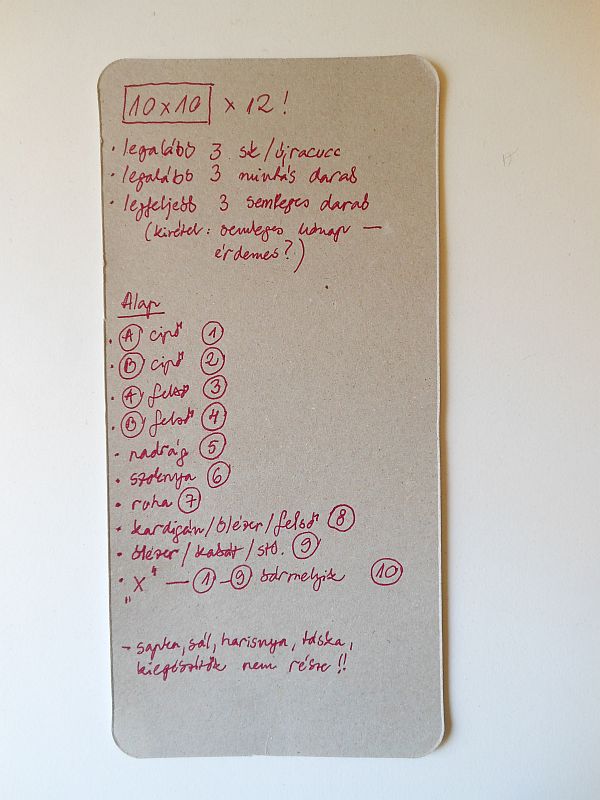 10x10 x 12!
· legalább 3 sk/újracucc
· legalább 3 mintás darab
· legfeljebb 3 semleges darab
(kivétel: semleges hónap —
érdemes?)
Alap
· A cipő 1
· B cipő 2
· A felső 3
· B felső 4
· nadrág 5
· szoknya 6
· ruha 7
· kardigán/blézer/felső 8
· blézer/kabát/stb. 9
· "X" — 1-9 bármelyik 10
- sapka, sál, harisnya, táska,
kiegészítők nem része!!